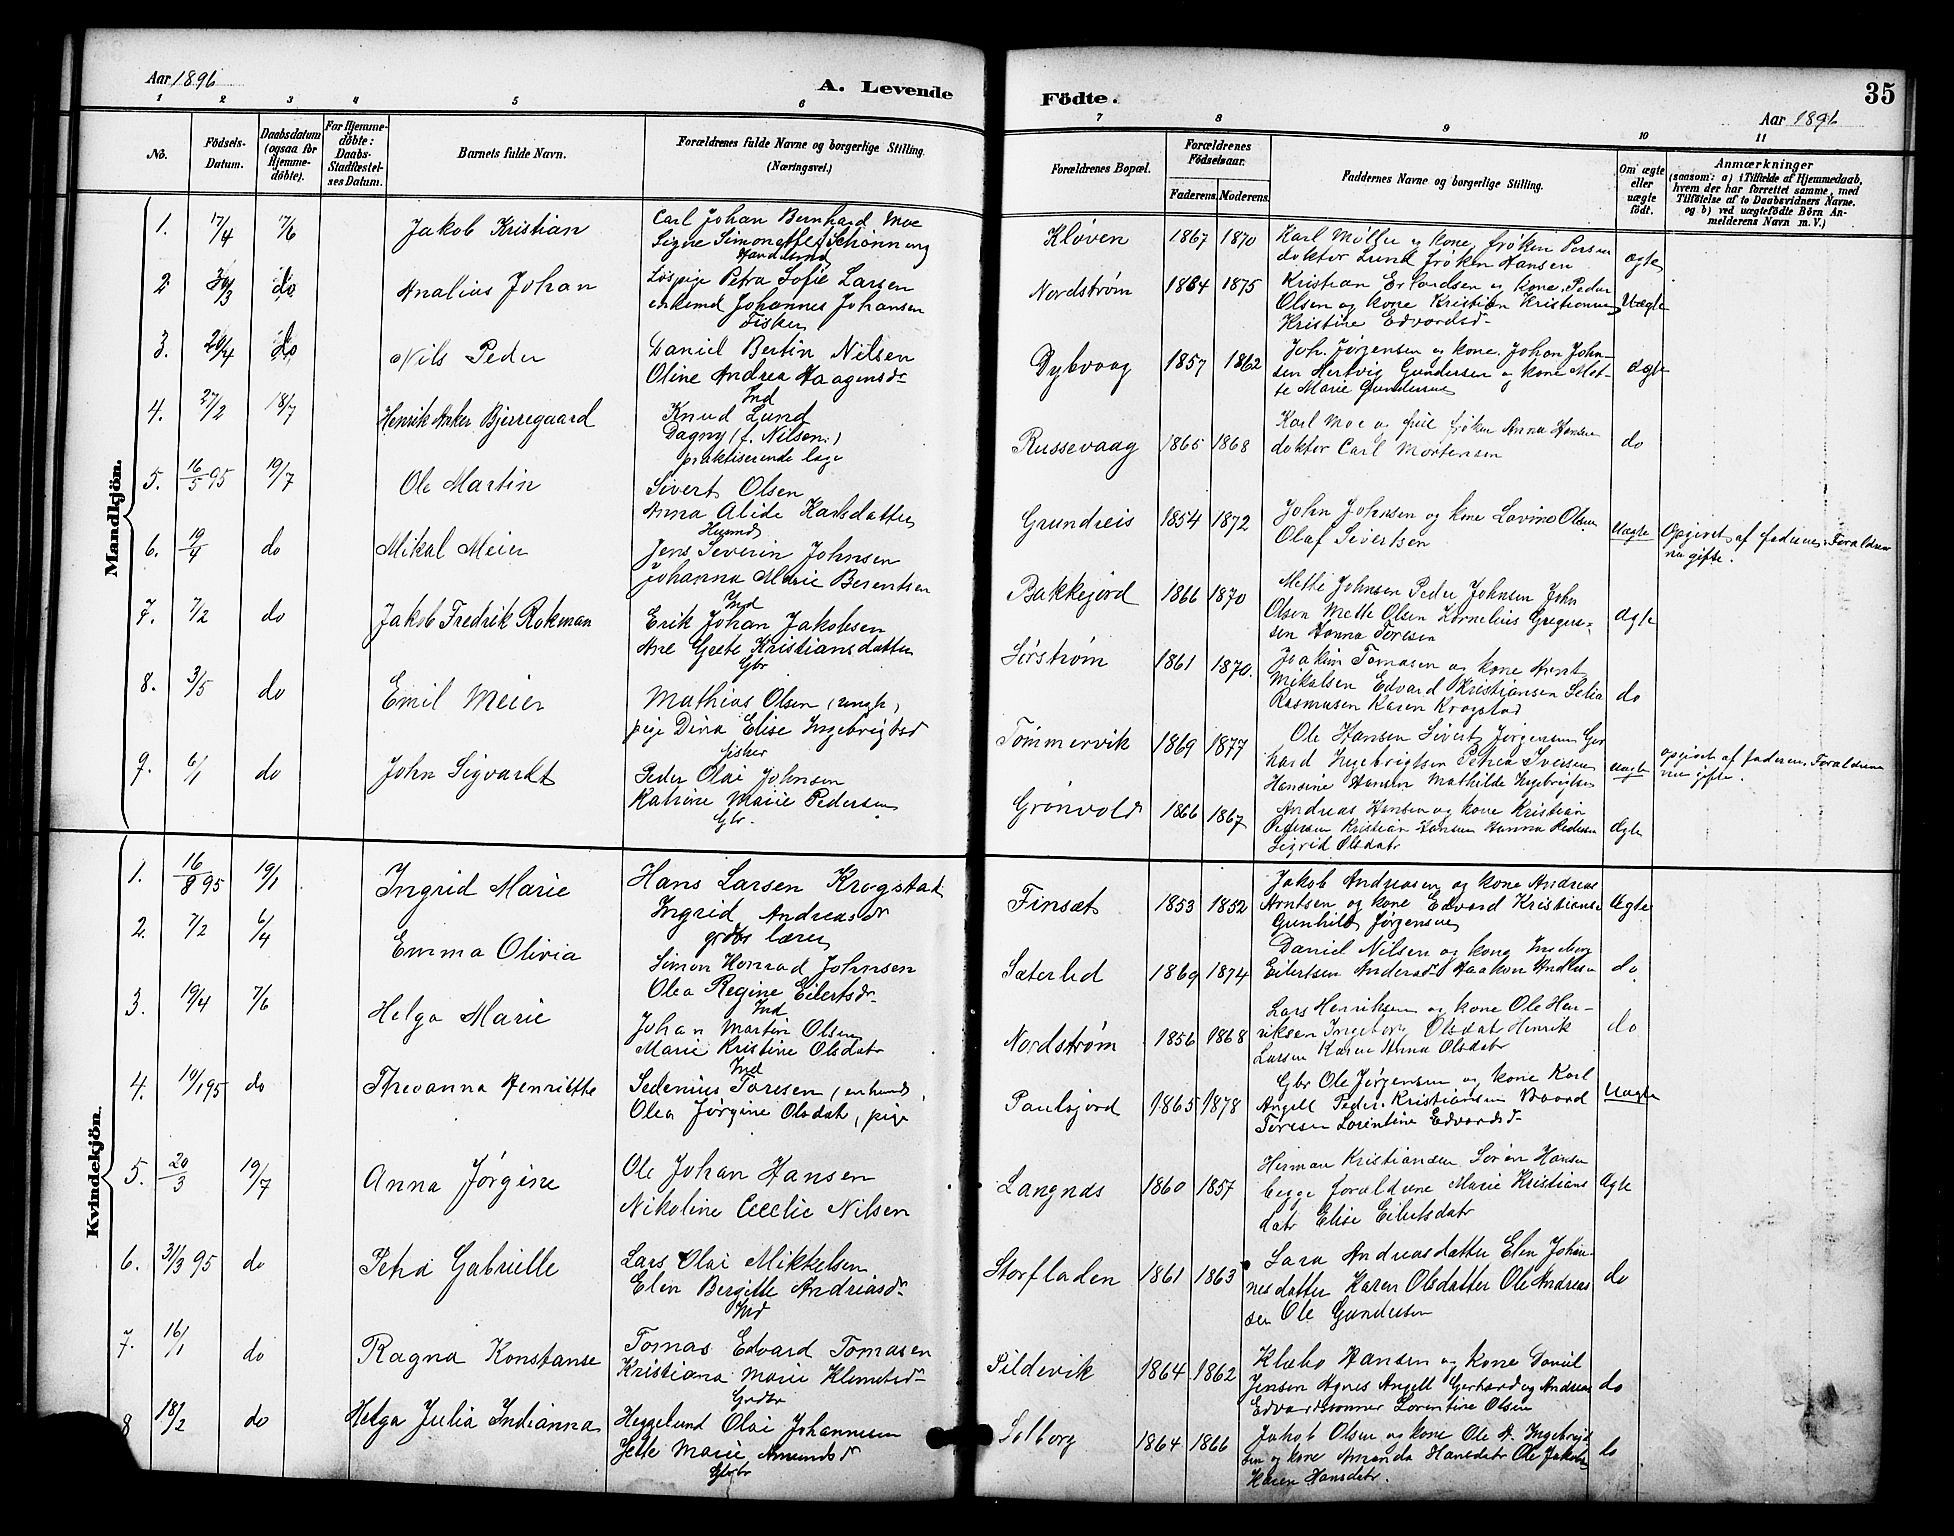 Aar 1896
A. Levende
Födte.
35
Aar 1896
1 2 3 4 5 6 7 8 9 10 11
No.
Födsels-Datum.
Daabsdatum (ogsaa for Hjemmedöbte).
For Hjemmedöbte: Daabs-Stadfæstelses Datum.
Barnets fulde Navn.
Forældrenes fulde Navne og borgerlige Stilling. (Næringsvei.)
Forældrenes Bopæl.
Forældrenes Födselsaar.
Faderens. Moderens.
Faddernes Navne og borgerlige Stilling.
Om ægte eller uægte födt.
Anmærkninger
(saasom: a) i Tilfælde af Hjemmedaab, hvem der har forrettet samme, med Tilföielse af to Daabsvidners Navne. og b) ved uægtefödte Börn Anmelderens Navn m. V.)
Mandkjön.
1. 17/4 7/6 Jakob Kristian
Carl Johan Bernhard Moe
Signe Simonette f. Schønning
Handelsmd
Kløven 1867 1870
Karl Møller og kone, frøken Persen
doktor Lund frøken Hansen
ægte
2 30/3 do Analius Johan
Løspige Petra Sofie Larsen
enkemd Johannes Johansen
Fisker
Nordstrøm 1864 1875
Kristian Erlandsen og kone, Peder
Olsen og kone Kristian Kristiansen
Kristine Edvardsd
Uægte
3. 20/4 do Nils Peder
Daniel Bertin Nilsen
Oline Andrea Haagensdr
Ind
Dybvaag 1857 1862
Joh. Jørgensen og kone, Johan John-
sen Hertvig Gundersen og kone Met-
te Marie Gundersen
ægte
4. 27/2 18/7 Henrik Anker Bjerregaard
Knud Lund
Dagny (f. Nilsen.)
praktiserende læge
Russevaag 1865 1868
Karl Moe og frue frøken Anna Hansen
doktor Carl Mortensen
do
5. 16/5 95 19/7 Ole Martin
Sivert Olsen
Anna Alide Karlsdatter
Husmd
Grundreis 1854 1872
John Johnsen og kone Lovina Olsen
Olaf Sivertsen
Uægte
Opgivet af faderen, Forældrene
nu gifte.
6. 19/4 do Mikal Meier
Jens Severin Johnsen
Johanna Marie Berentsen
Ind
Bakkejord 1866 1870
Mette Johnsen Peder Johnsen John
Olsen Mette Olsen Kornelius Gregers-
sen Hanna Toresen
ægte
7. 7/2 do Jakob Fredrik Rokman
Erik Johan Jakobsen
Ane Grete Kristiansdatter
Gbr
Sørstrøm 1861 1870.
Joakim Tomasen og kone Arnt
Mikalsen Edvard Kristiansen Selia
Rasmusen Karen Krogstad
do
8. 3/5 do Emil Meier
Mathias Olsen (ungk)
pige Dina Elise Ingebrigtsd
fisker
Tømmervik 1869 1877
Ole Hansen Sivert Jørgensen Ger
hard Ingebrigtsen Petrea Iversen
Hansine Hansen Mathilde Ingebrigtsen
uægte
Opgivet af faderen, Forældrene
nu gifte.
9. 6/1 do John Sigvardt
Peder Olai Johnsen
Katrine Marie Pedersen
Gbr.
Grønvold 1866 1867
Andreas Hansen og kone Kristian
Pedersen Kristian Hansen Hanna Pedersen
Sigrid Olsdatr
ægte
Kvindekjön.
1. 16/8 95 19/1 Ingrid Marie
Hans Larsen Krogstad
Ingrid Andreasdr
grdbr lærer
Finsæt 1853 1852
Jakob Andreasen og kone Andreas
Arntsen og kone Edvard Kristiansen
Gunhild Jørgensen
Ægte
2. 7/2 6/4 Emma Olivia
Simon Konrad Johnsen
Olea Regine Eilertsdr
Ind
Sæterlid 1869 1874
Daniel Nilsen og kone Ingeborg
Eilertsen Andersdr Haakon Andersen
do
3. 19/4 7/6 Helga Marie
Johan Martin Olsen
Marie Kristine Olsdatr
Ind
Nordstrøm 1856 1868
Lars Henriksen og kone Ole Hen-
riksen Ingeborg Olsdatr Henrik
Larsen Karen Anna Olsdatr
do
4. 10/1 95 do Thevanna Henriette
Sedenius Toresen (enkemd),
Olea Jørgine Olsdatr, pige
Paulsjord 1865 1878
Gbr Ole Jørgensen og kone Karl
Angell Peder Kristiansen Baard
Toresen Lorentine Edvardsdr
Uægte
5. 20/3 19/7 Anna Jørgine
Ole Johan Hansen
Nikoline Cecelie Nilsen
Langnæs 1860 1857
Herman Kristiansen Søren Hansen
begge forældrene Marie Kristians
datr Elise Eilertsdatr
Ægte
6. 31/3 95 do Petra Gabrielle
Lars Olai Mikkelsen
Elen Bergitte Andreasdr
Ind
Storfladen 1861 1863
Sara Andreasdatter Elen Johan-
nesdatter Karen Olsdatter Ole Andreas
sen Ole Gundersen
do
7. 16/1 do Ragna Konstanse
Tomas Edvard Tomasen
Kristiana Marie Klemetsdr
Grdbr
Sildevik 1864 1862
Klæbo Hansen og kone Daniel
Jensen Agnes Angell Gerhard og Andreas
Edvardssønner Lorentine Olsen
do
8 18/2 do Helga Julia Indianna
Heggelund Olai Johannesen
Jette Marie Amundsdr
Gbr
Solborg 1864 1866
Jakob Olsen og kone Ole A. Ingebrigt
sen og kone Amanda Hansdatr Ole Jakobs
Karen Hansdatr.
do